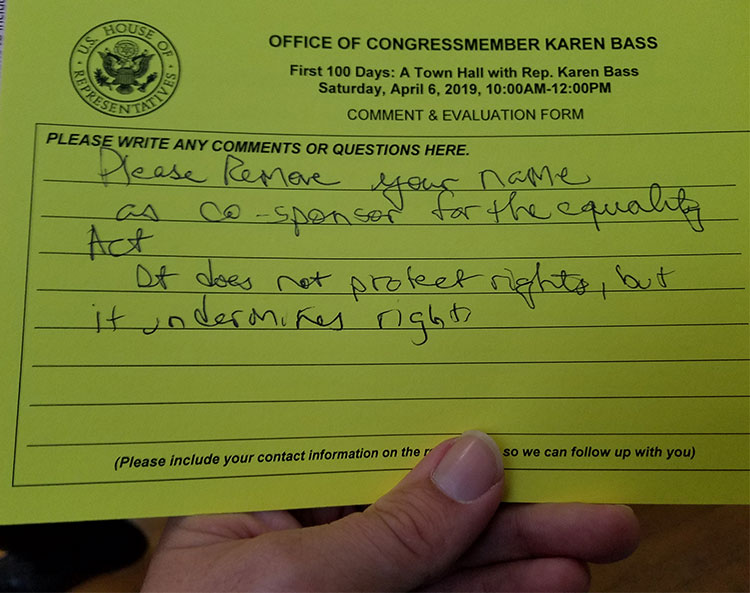 U.S. HOUSE OF
REPRESENTATIVES
OFFICE OF CONGRESSMEMBER KAREN BASS
First 100 Days: A Town Hall with Rep. Karen Bass
Saturday, April 6, 2019, 10:00AM-12:00PM
COMMENT & EVALUATION FORM
PLEASE WRITE ANY COMMENTS OR QUESTIONS HERE.
Please Remove your name
as co-sponsor for the equality
Act
It does not protect rights, but
it undermines rights
(Please include your contact information on the so we can follow up with you)